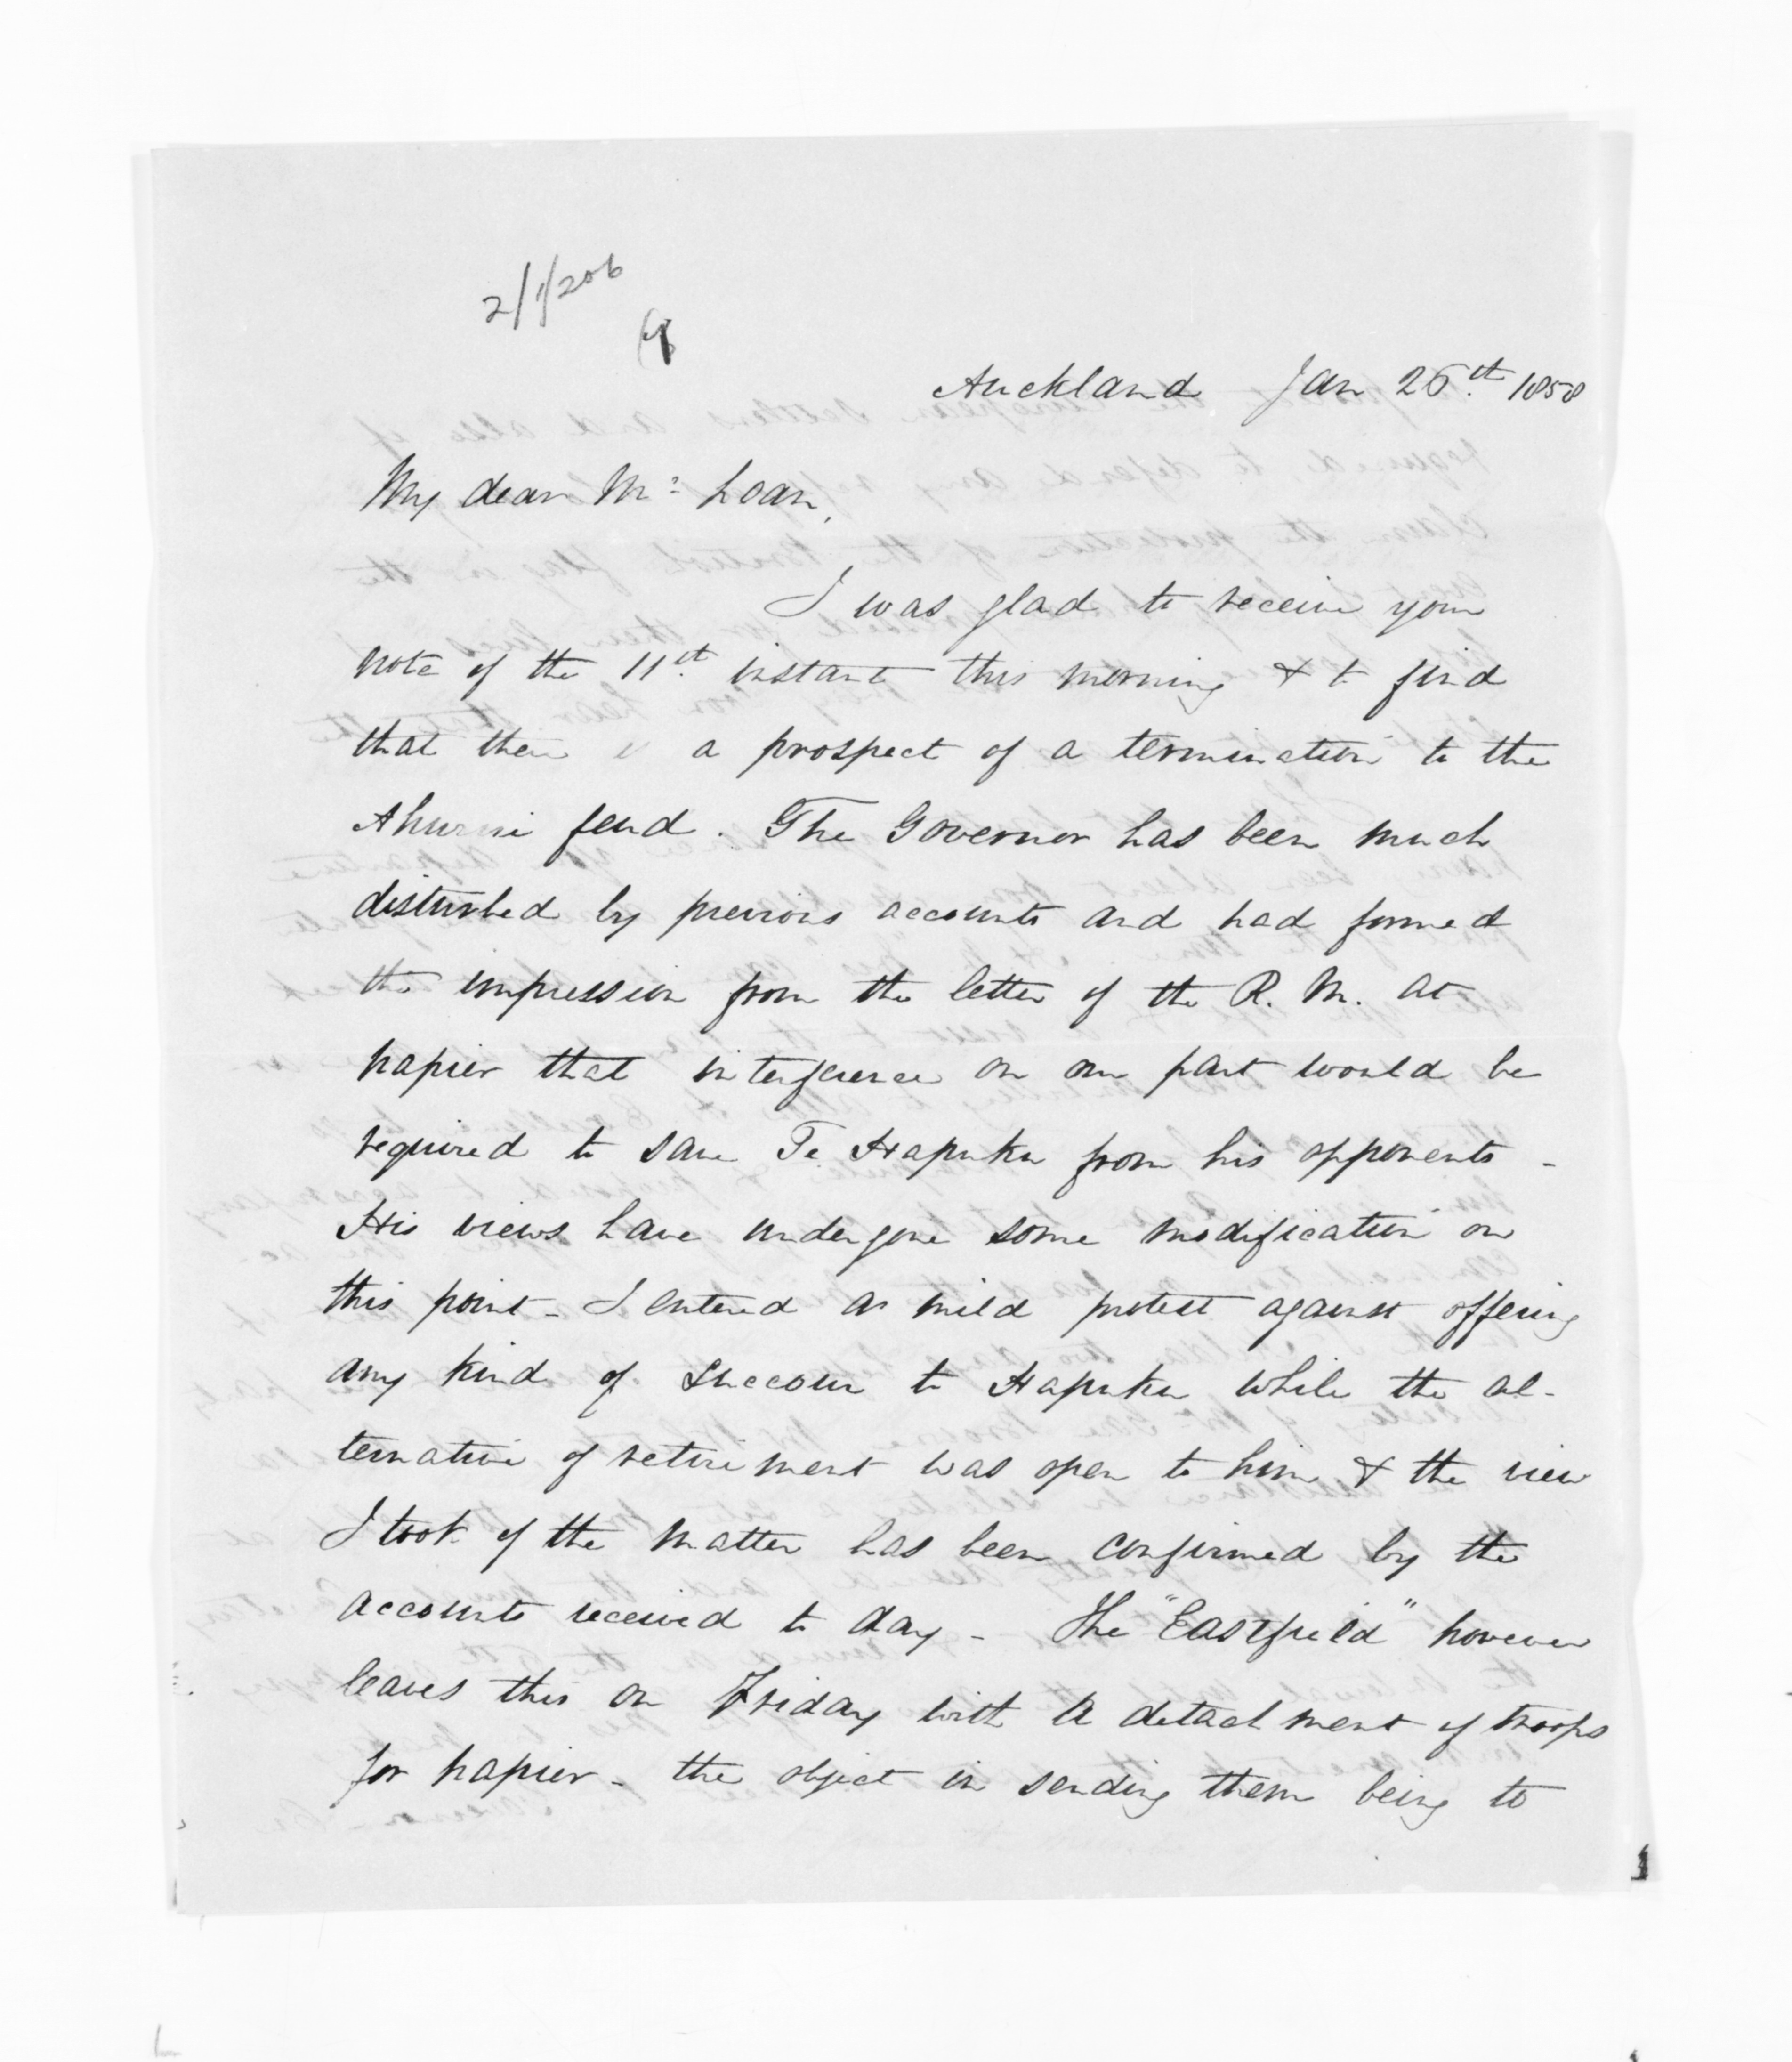 2/1/206
Auckland Jan 26th. 1858
My dear Mr: Loan,
I was glad to receive your
note of the 11th. instant this morning & to find
that there is a prospect of a termination to the
Ahuriri feud. The Governor has been much
disturbed by previous accounts and had formed
the impression from the letter of the R. M. at
Napier that interference on our part would be
required to save Te Hapuku from his opponents -
His views have undergone some modification on
this point - I entered a mild protest against offering
any kind of succour to Hapuku while the al-
ternative of retirement was open to him & the view
I took of the matter has been confirmed by the
accounts received to day - The "Eastfield" however
leaves this on Friday with a detachment of troops
for Napier - the object in sending them being to